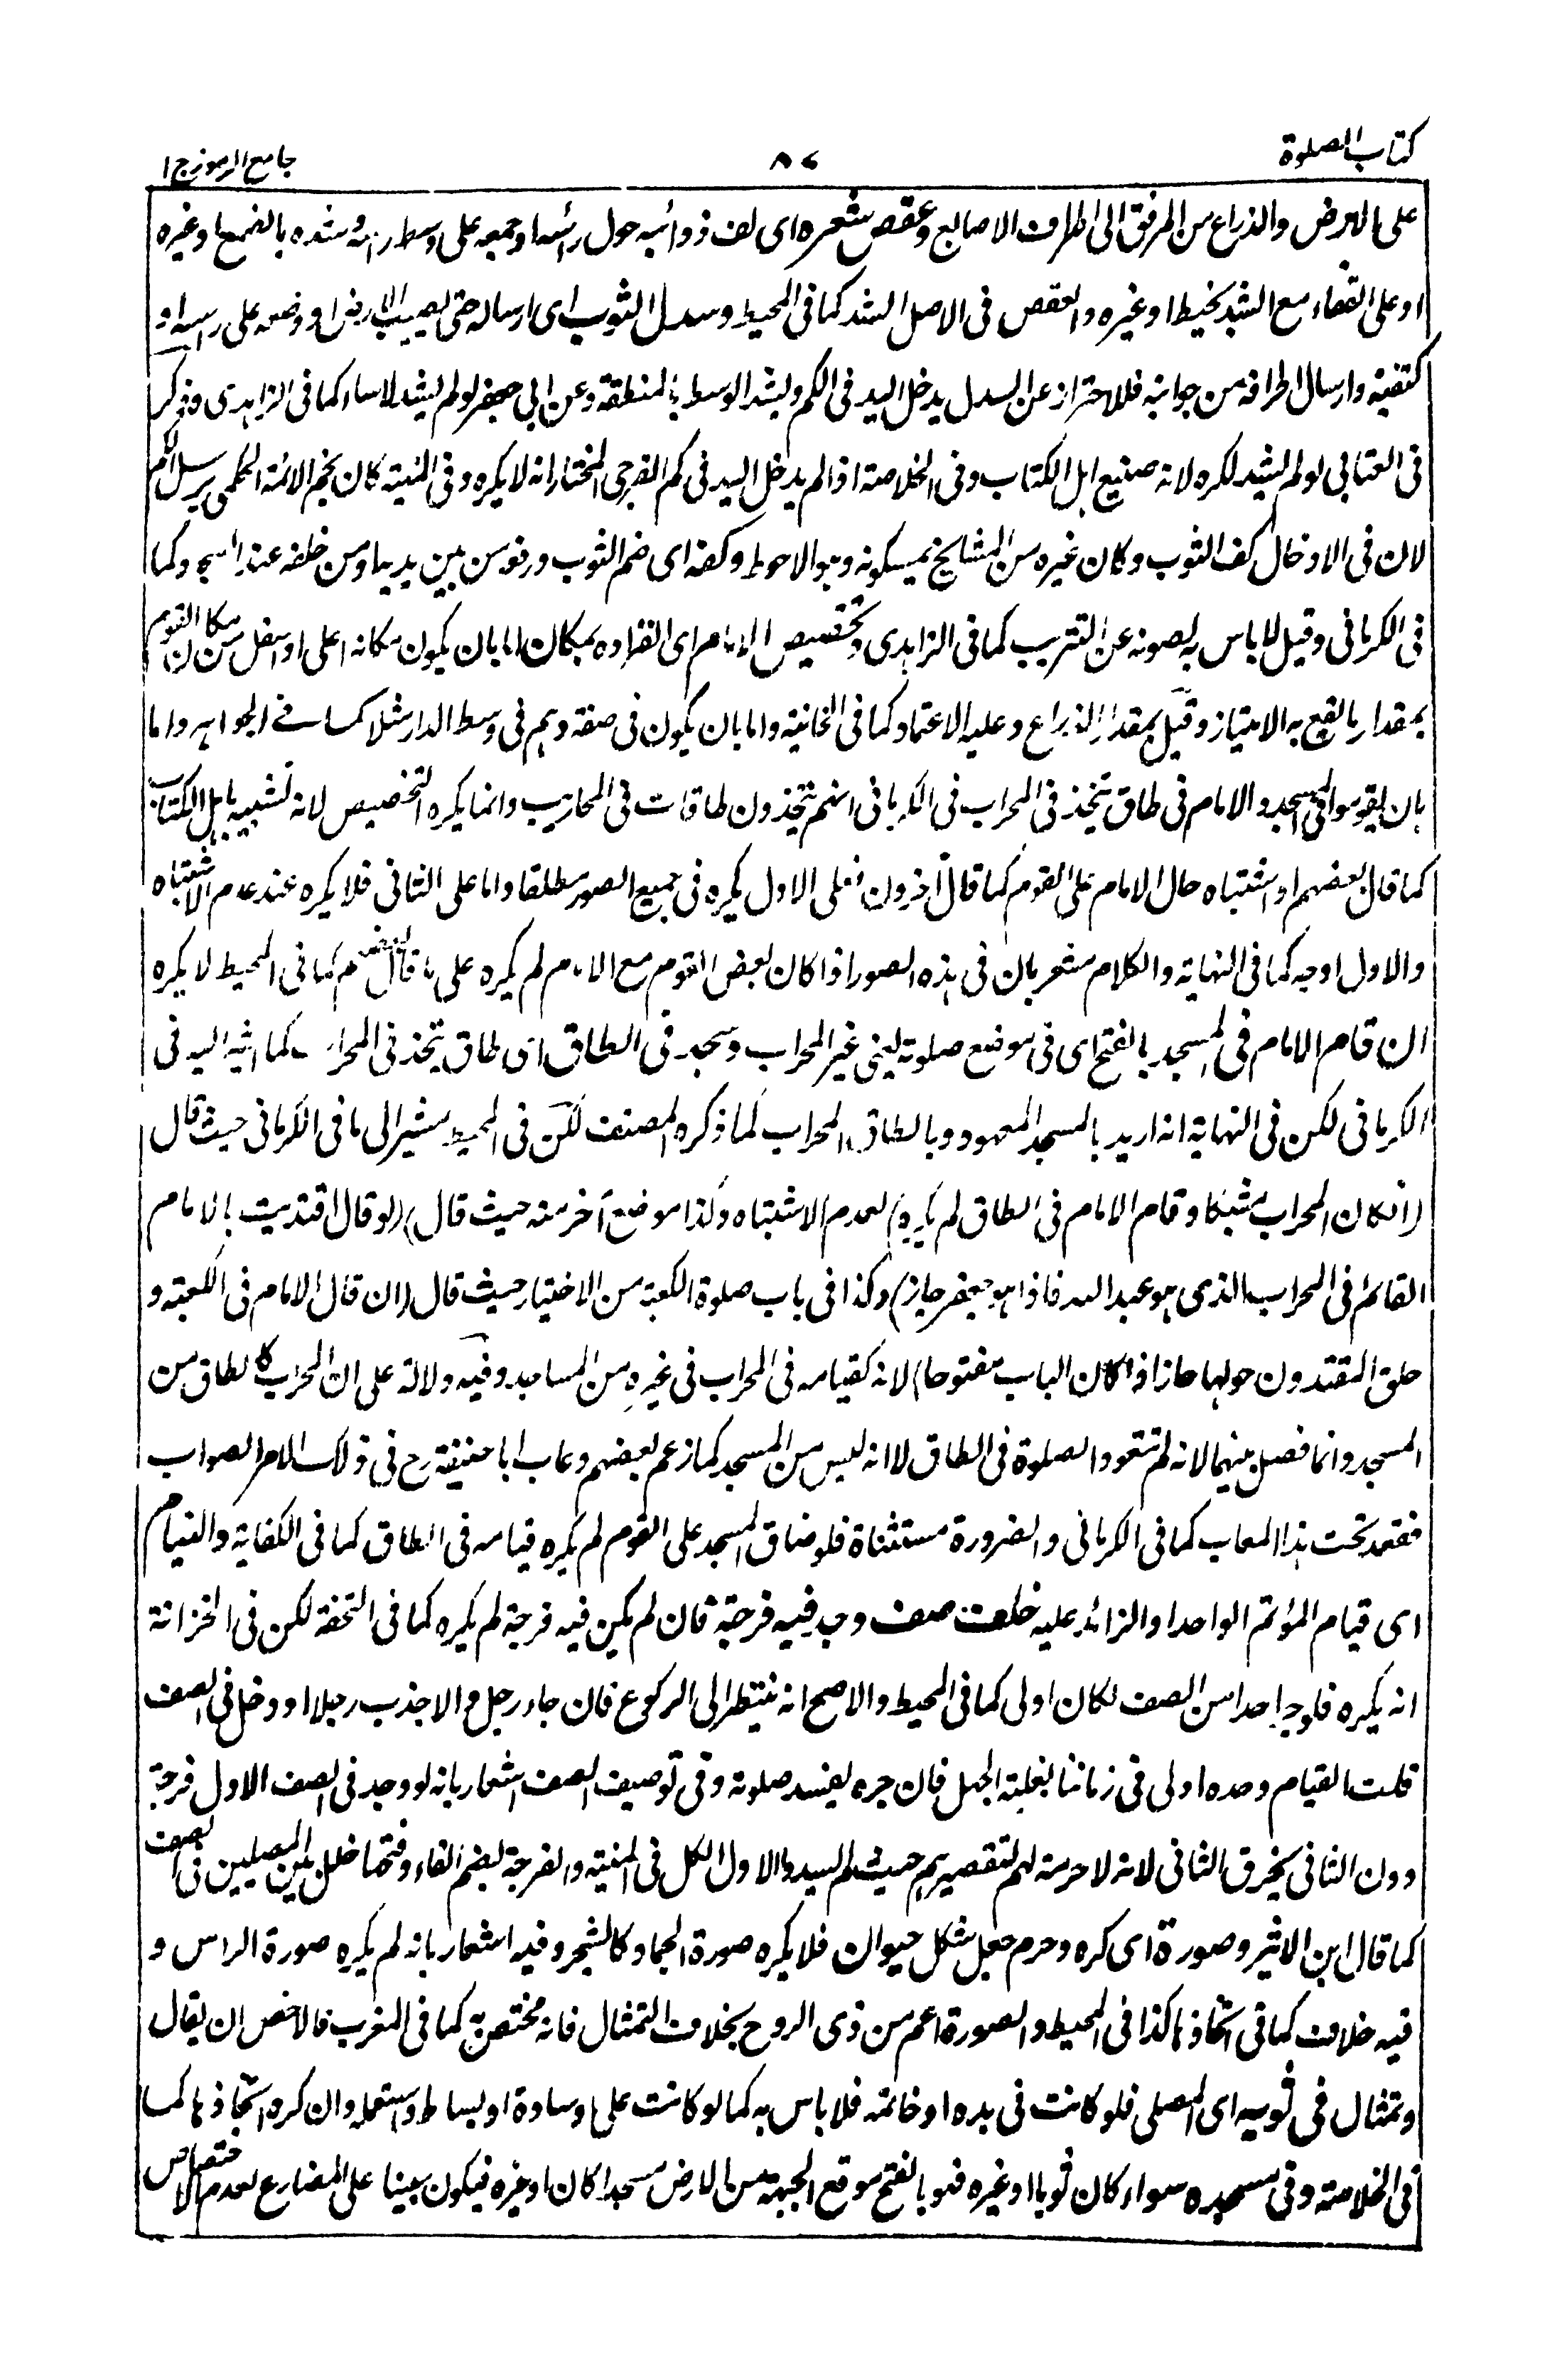 كتاب الصلوة
٨٧
جامع الرموز ج ١
على الارض والذراع من المرفق الى اطراف الاصابع وعقص شعره اى لف ذوائبه حول رأسه او جمعه على وسط رأسه وشده بالصمغ او غيره
او على القفاء مع الشد بخيط او غيره والعقص فى الاصل الشد كما فى المحيط وسدل الثوب اى ارساله حتى يصيب الارض او وضعه على راسه او
كتفيه وارسال اطرافه من جوانبه فللاحتراز عن السدل يدخل اليد فى الكم ويشد الوسط بالمنطقة وعن ابي جعفر لو لم يشد لاساء كما فى الزاهدى وذكر
فى العتابى لو لم يشد لكره لانه صنيع اهل الكتاب وفى الخلاصة اذا لم يدخل اليد فى كم الفرجى المختار انه لا يكره وفى المنية كان نجم الائمة الحكمى يرسل الكم
لان فى الادخال كف الثوب وكان غيره من المشايخ يمسكونه وهو الاحوط وكفه اى ضم الثوب ورفعه من بين يديه او من خلفه عند السجود كما
فى الكرمانى وقيل لا باس به لصونه عن التتريب كما فى الزاهدى وتخصيص الامام اى انفراده بمكان اما بان يكون مكانه اعلى او اسفل من مكان القوم
بمقدار ما يقع به الامتياز وقيل بمقدار الذراع وعليه الاعتماد كما فى الخانية واما بان يكون فى صفة وهم فى وسط الدار مثلا كما فى الجواهر واما
بان يقوموا فى المسجد والامام فى طاق يتخذ فى المحراب فى الكرمانى انهم يتخذون طاقات فى المحاريب وانما يكره التخصيص لانه تشبيه باهل الكتاب
كما قال بعضهم او اشتباه حال الامام على القوم كما قال آخرون فعلى الاول يكره فى جميع الصور مطلقا واما على الثانى فلا يكره عند عدم الاشتباه
والاول اوجه كما فى النهاية والكلام مشعر بان فى هذه الصور اذا كان بعض القوم مع الامام لم يكره على ما قال بعضهم كما فى المحيط لا يكره
ان قام الامام فى المسجد بالفتح اى فى موضع صلوته يعنى غير المحراب وسجد فى الطاق اى طاق يتخذ فى المحراب كما اشير اليه فى
الكرمانى لكن فى النهاية انه اريد بالمسجد المعهود وبالطاق المحراب كما ذكره المصنف لكن فى المحيط مشير الى ما فى الكرمانى حيث قال
(ان كان المحراب مشبكا وقام الامام فى الطاق لم يكره) لعدم الاشتباه وكذا موضع آخر منه حيث قال (لو قال اقتديت بالامام
القائم فى المحراب الذى هو عبد الله فاذا هو جعفر جاز) وكذا فى باب صلوة الكعبة من الاختيار حيث قال (ان قام الامام فى الكعبة و
حلق المقتدون حولها جاز اذا كان الباب مفتوحا) لانه كقيامه فى المحراب فى غيره من المساجد وفيه دلالة على ان المحراب كالطاق من
المسجد وانما فصل بينهما لانه لم تتعود الصلوة فى الطاق لا انه ليس من المسجد كما زعم بعضهم وعاب ابا حنيفة رح فى ذلك الامر الصواب
فقعد تحت هذا المعاب كما فى الكرمانى والضرورة مستثناة فلو ضاق المسجد على القوم لم يكره قيامه فى الطاق كما فى الكفاية والقيام
اى قيام المؤتم الواحد او الزائد عليه خلف صف وجد فيه فرجة فان لم يكن فيه فرجة لم يكره كما فى التحفة لكن فى الخزانة
انه يكره فلو جر احدا من الصف لكان اولى كما فى المحيط والاصح انه ينتظر الى الركوع فان جاء رجل والا جذب رجلا او دخل فى الصف
قلت القيام وحده اولى فى زماننا لغلبة الجهل فان جره يفسد صلوته وفى توصيف الصف اشعار بانه لو وجد فى الصف الاول فرجة
دون الثانى يخرق الثانى لانه لا حرمة لهم لتقصيرهم حيث لم يسدوا الاول الكل فى المنية والفرجة بضم الفاء وفتحها خلل بين المصلين فى الصف
كما قال ابن الاثير وصورة اى كره وحرم جعل شكل حيوان فلا يكره صورة الجماد كالشجر وفيه اشعار بانه لم يكره صورة الراس و
فيه خلاف كما فى اتخاذها كذا فى المحيط والصورة اعم من ذى الروح بخلاف التمثال فانه مختص به كما فى المغرب فالاخص ان يقال
وتمثال فى ثوبيه اى المصلى فلو كانت فى يده او خاتمه فلا باس به كما لو كانت على وسادة او بساط واستعمله وان كره اتخاذها كما
فى الخلاصة وفى مسجده سواء كان ثوبا او غيره فهو بالفتح موقع الجبهة من الارض مسجدا كان او غيره فيكون مبينا على المضارع لعدم الاختصاص